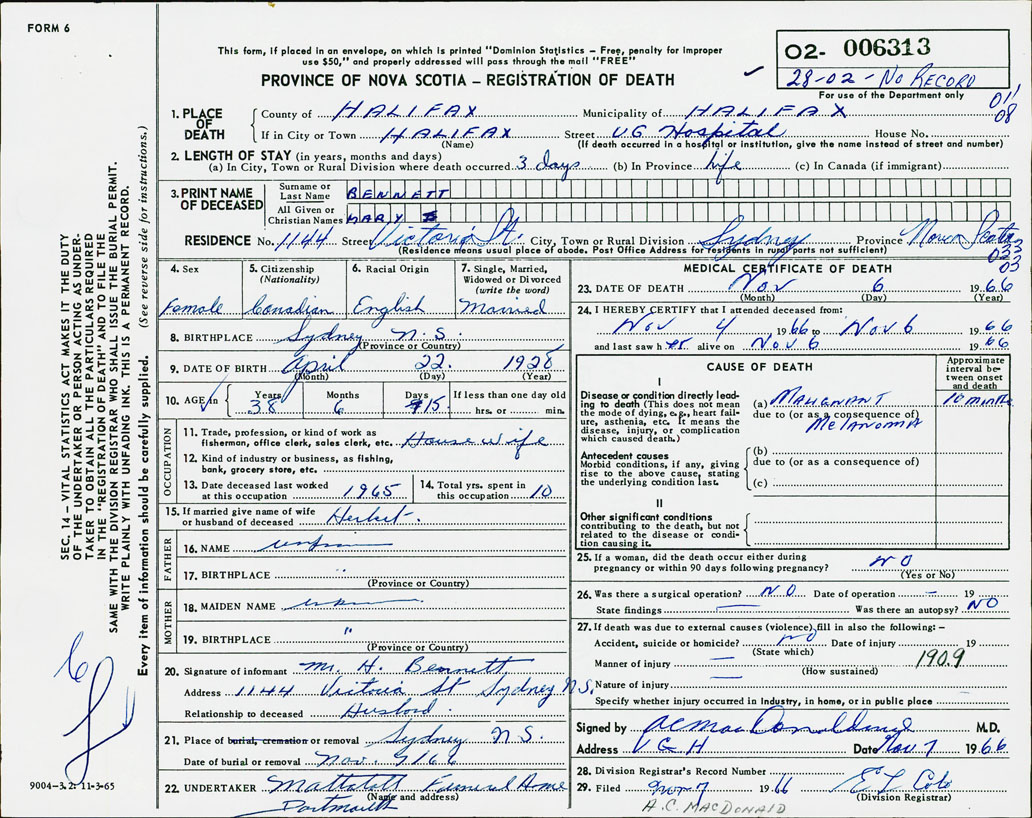 FORM 6
This form, if placed in an envelope, on which is printed "Dominion Statistics – Free, penalty for improper
use $50," and properly addressed will pass through the mail "FREE"
PROVINCE OF NOVA SCOTIA – REGISTRATION OF DEATH
02- 006313
28-02 - NO RECORD
For use of the Department only
011
08
1. PLACE OF DEATH
County of HALIFAX Municipality of HALIFAX
If in City or Town HALIFAX Street V.G. Hospital House No.
(Name) (If death occurred in a hospital or institution, give the name instead of street and number)
2. LENGTH OF STAY (in years, months and days)
(a) In City, Town or Rural Division where death occurred 3 days (b) In Province life (c) In Canada (if immigrant)
3. PRINT NAME OF DECEASED
Surname or Last Name BENNETT
All Given or Christian Names MARY
RESIDENCE No. 1144 Street Victoria St. City, Town or Rural Division Sydney Province Nova Scotia
(Residence means usual place of abode. Post Office Address for residents in rural parts not sufficient)
033
03
4. Sex
Female
5. Citizenship
(Nationality)
Canadian
6. Racial Origin
English
7. Single, Married,
Widowed or Divorced
(write the word)
Married
8. BIRTHPLACE Sydney N.S.
(Province or Country)
9. DATE OF BIRTH April 22 1928
(Month) (Day) (Year)
10. AGE in Years Months Days If less than one day old
38 6 15 hrs. or min.
OCCUPATION
11. Trade, profession, or kind of work as
fisherman, office clerk, sales clerk, etc. Housewife
12. Kind of industry or business, as fishing,
bank, grocery store, etc.
13. Date deceased last worked
at this occupation 1965
14. Total yrs. spent in
this occupation 10
15. If married give name of wife
or husband of deceased Herbert.
FATHER
16. NAME
17. BIRTHPLACE "
(Province or Country)
MOTHER
18. MAIDEN NAME
19. BIRTHPLACE "
(Province or Country)
20. Signature of informant Mr. H. Bennett
Address 1144 Victoria St Sydney N.S.
Relationship to deceased Husband.
21. Place of burial, cremation or removal Sydney N.S.
Date of burial or removal Nov. 9/66
22. UNDERTAKER Funeral Home
(Name and address)
Dartmouth
MEDICAL CERTIFICATE OF DEATH
23. DATE OF DEATH Nov 6 1966
(Month) (Day) (Year)
24. I HEREBY CERTIFY that I attended deceased from:
Nov 4, 1966 to Nov 6 1966
and last saw her alive on Nov 6 1966
CAUSE OF DEATH
Approximate
interval be-
tween onset
and death
I
Disease or condition directly lead-
ing to death (This does not mean
the mode of dying, e.g., heart fail-
ure, asthenia, etc. It means the
disease, injury, or complication
which caused death.)
(a) MALIGNANT 10 months
due to (or as a consequence of)
MELANOMA
Antecedent causes
Morbid conditions, if any, giving
rise to the above cause, stating
the underlying condition last.
(b)
due to (or as a consequence of)
(c)
II
Other significant conditions
contributing to the death, but not
related to the disease or condi-
tion causing it.
25. If a woman, did the death occur either during
pregnancy or within 90 days following pregnancy? NO
(Yes or No)
26. Was there a surgical operation? NO Date of operation – 19
State findings — Was there an autopsy? NO
27. If death was due to external causes (violence) fill in also the following: –
Accident, suicide or homicide? no Date of injury 19
(State which)
Manner of injury — 190.9
(How sustained)
Nature of injury —
Specify whether injury occurred in Industry, in home, or in public place
Signed by M.D.
Address V G H Date Nov 7 1966
28. Division Registrar's Record Number
29. Filed Nov 7 1966
(Division Registrar)
A.C. MACDONALD
SEC. 14 – VITAL STATISTICS ACT MAKES IT THE DUTY
OF THE UNDERTAKER OR PERSON ACTING AS UNDER-
TAKER TO OBTAIN ALL THE PARTICULARS REQUIRED
IN THE "REGISTRATION OF DEATH" AND TO FILE THE
SAME WITH THE DIVISION REGISTRAR WHO SHALL ISSUE THE BURIAL PERMIT.
WRITE PLAINLY WITH UNFADING INK. THIS IS A PERMANENT RECORD.
Every item of information should be carefully supplied. (See reverse side for instructions.)
9004-3.2: 11-3-65